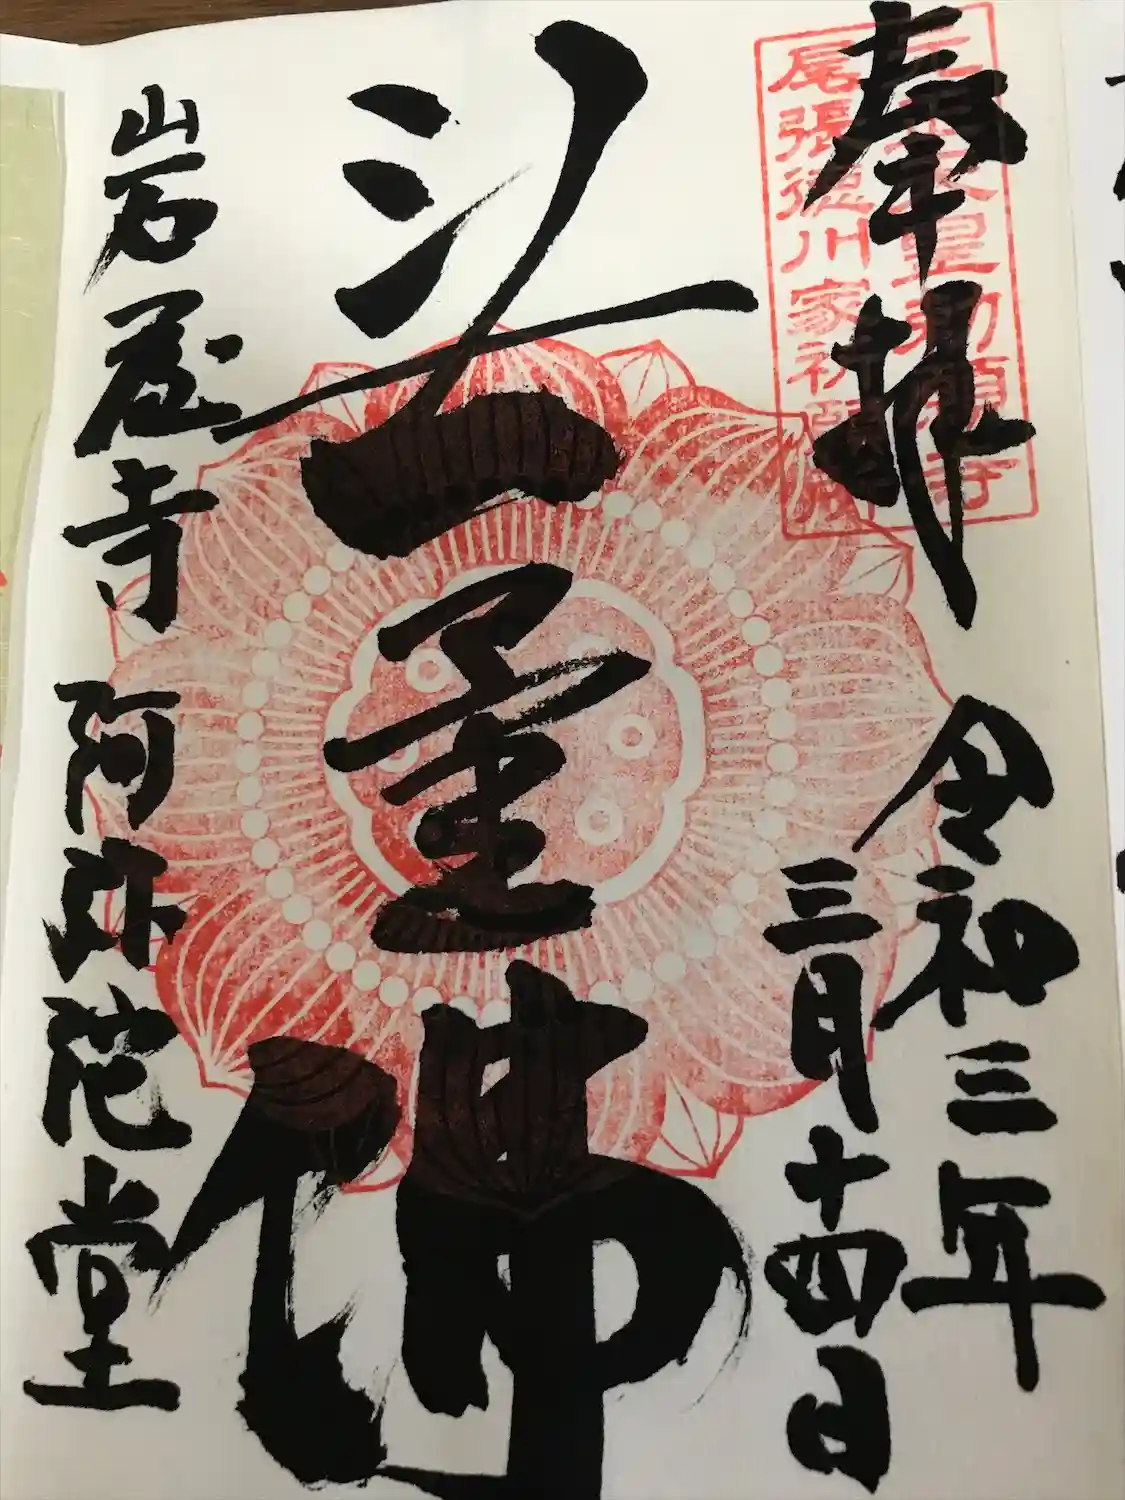 奉拝
元正天皇勅願寺
尾張徳川家祈願所
令和三年
三月十四日
佛
岩屋寺 阿弥陀堂